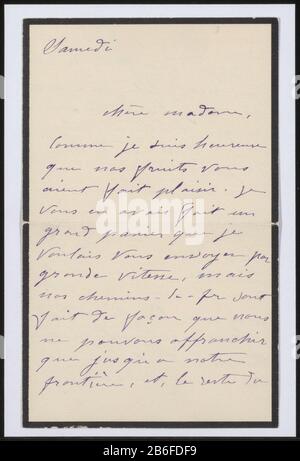 Samedi
chère madame,
Comme je suis heureuse
que nos fruits vous
aient fait plaisir. Je
vous en avais fait un
grand panier que je
voulais vous envoyer par
grande vitesse, mais
nos chemins-de-fer sont
fait de façon que nous
ne pouvons affranchir
que jusqu'a notre
frontière, et, le reste du
alamy
Image ID: 2B6FDF9
www.alamy.com